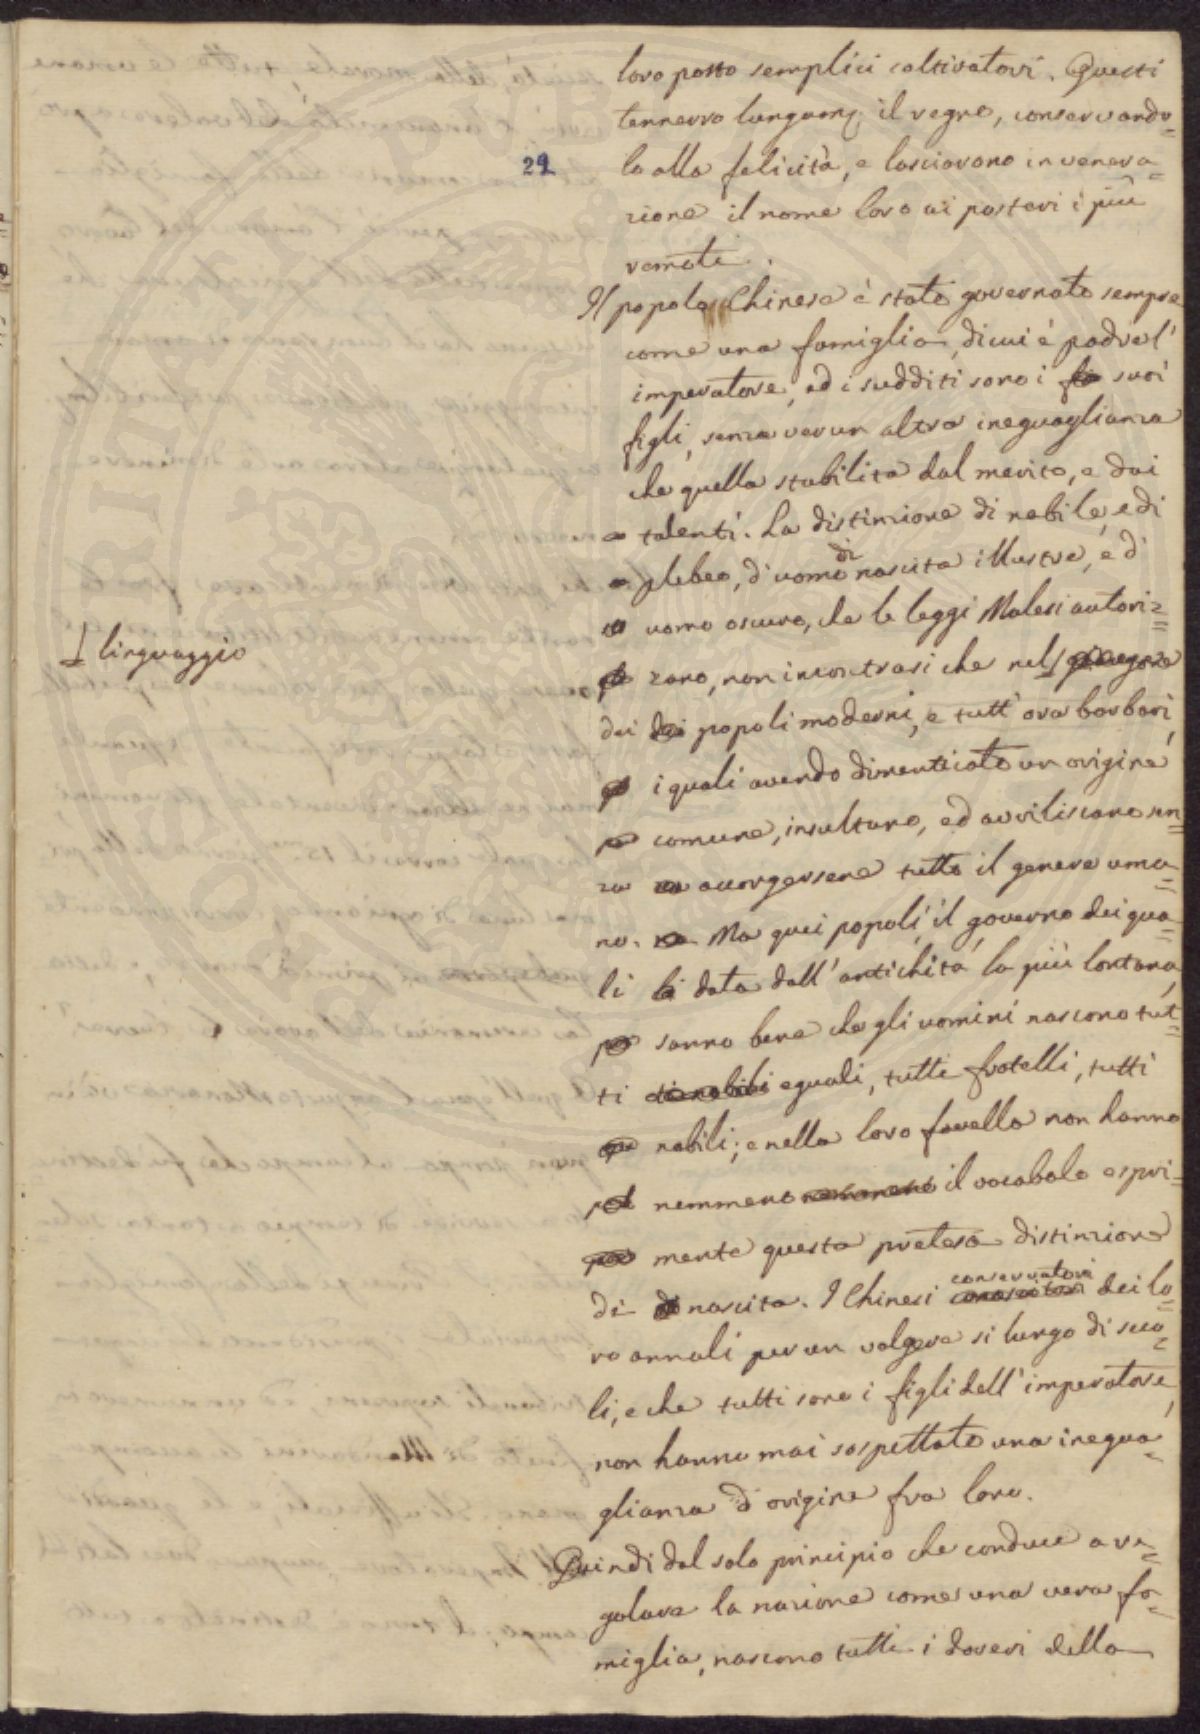 29
loro posto semplici coltivatori. Questi
tennero lungam. il regno, conservando-
lo alla felicità, e lasciarono in venera-
zione il nome loro ai posteri i più
remoti.
Il popolo Chinese è stato governato sempre
come una famiglia, di cui è padre l'
imperatore, ed i sudditi sono i suoi
figli, senza verun altra ineguaglianza
che quella stabilita dal merito, e dai
talenti. La distinzione di nobile, e di
plebeo, d'uomo di nascita illustre, e d'
uomo oscuro, che le leggi Malesi autori=
zano, non incontrasi che nel
linguaggio
dei popoli moderni, e tutt'ora barbari,
i quali avendo dimenticato un origine
comune, insultano, ed avviliscono sen=
za accorgersene tutto il genere uma=
no. Ma quei popoli, il governo dei qua=
li data dall'antichità la più lontana,
sanno bene che gli uomini nascono tut=
ti eguali, tutti fratelli, tutti
nobili; e nella loro favella non hanno
nemmeno il vocabolo espri-
mente questa pretesa distinzione
di nascita. I Chinesi conservatori dei lo=
ro annali per un volgere si lungo di seco=
li, e che tutti sono i figli dell'imperatore,
non hanno mai sospettato una inegua=
glianza d'origine fra loro.
Quindi dal solo principio che conduce a re=
golare la nazione come una vera fa=
miglia, nascono tutti i doveri della